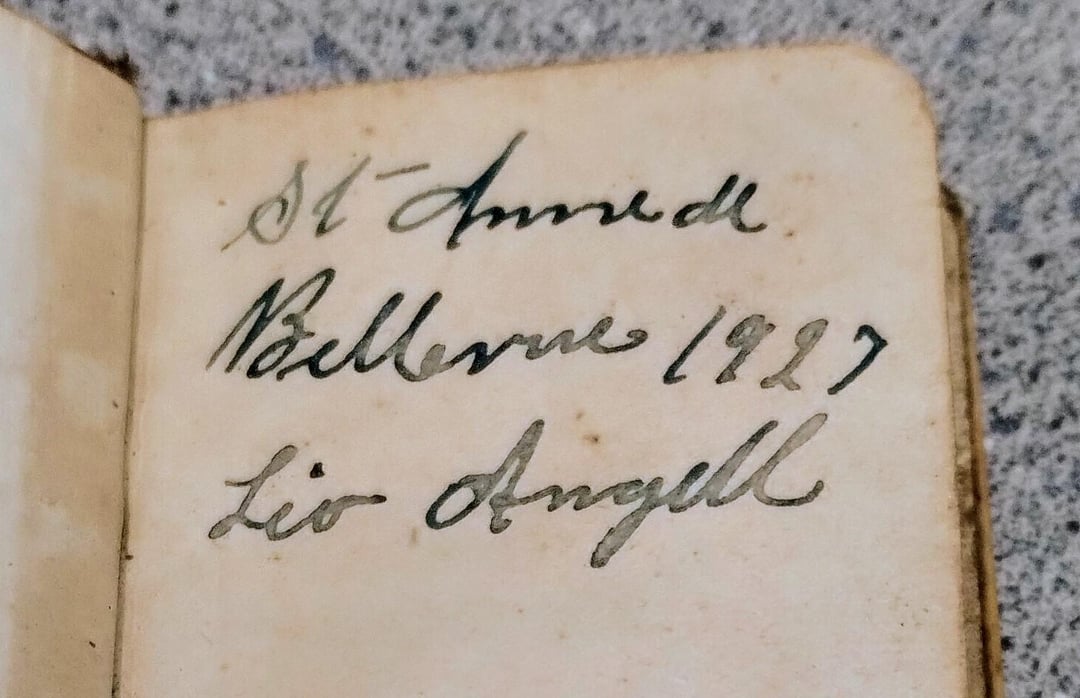 St- Anne de
Bellevue 1927
Lio Angell